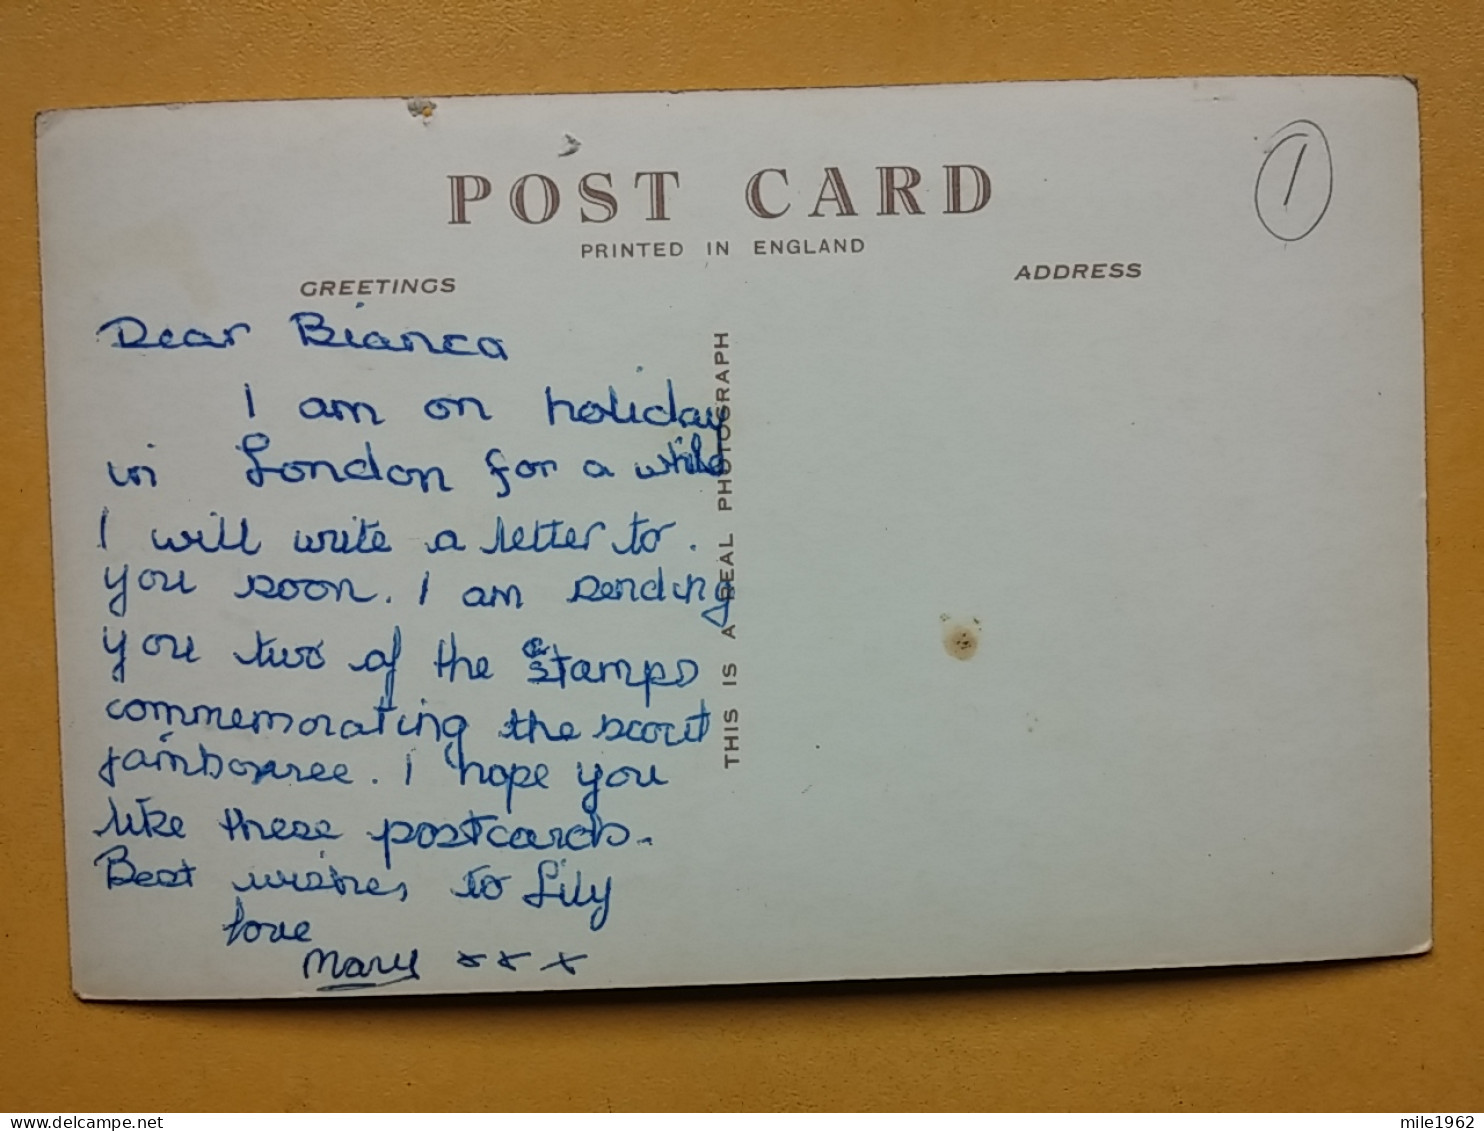 POST CARD
PRINTED IN ENGLAND
GREETINGS
ADDRESS
1
Dear Bianca
I am on holiday
in London for a while
I will write a letter to.
you soon. I am sending
you two of the stamps
commemorating the scout
jamboree. I hope you
like these postcards.
Best wishes, to Lily
love
Mary xxx
THIS IS A REAL PHOTOGRAPH
mile1962